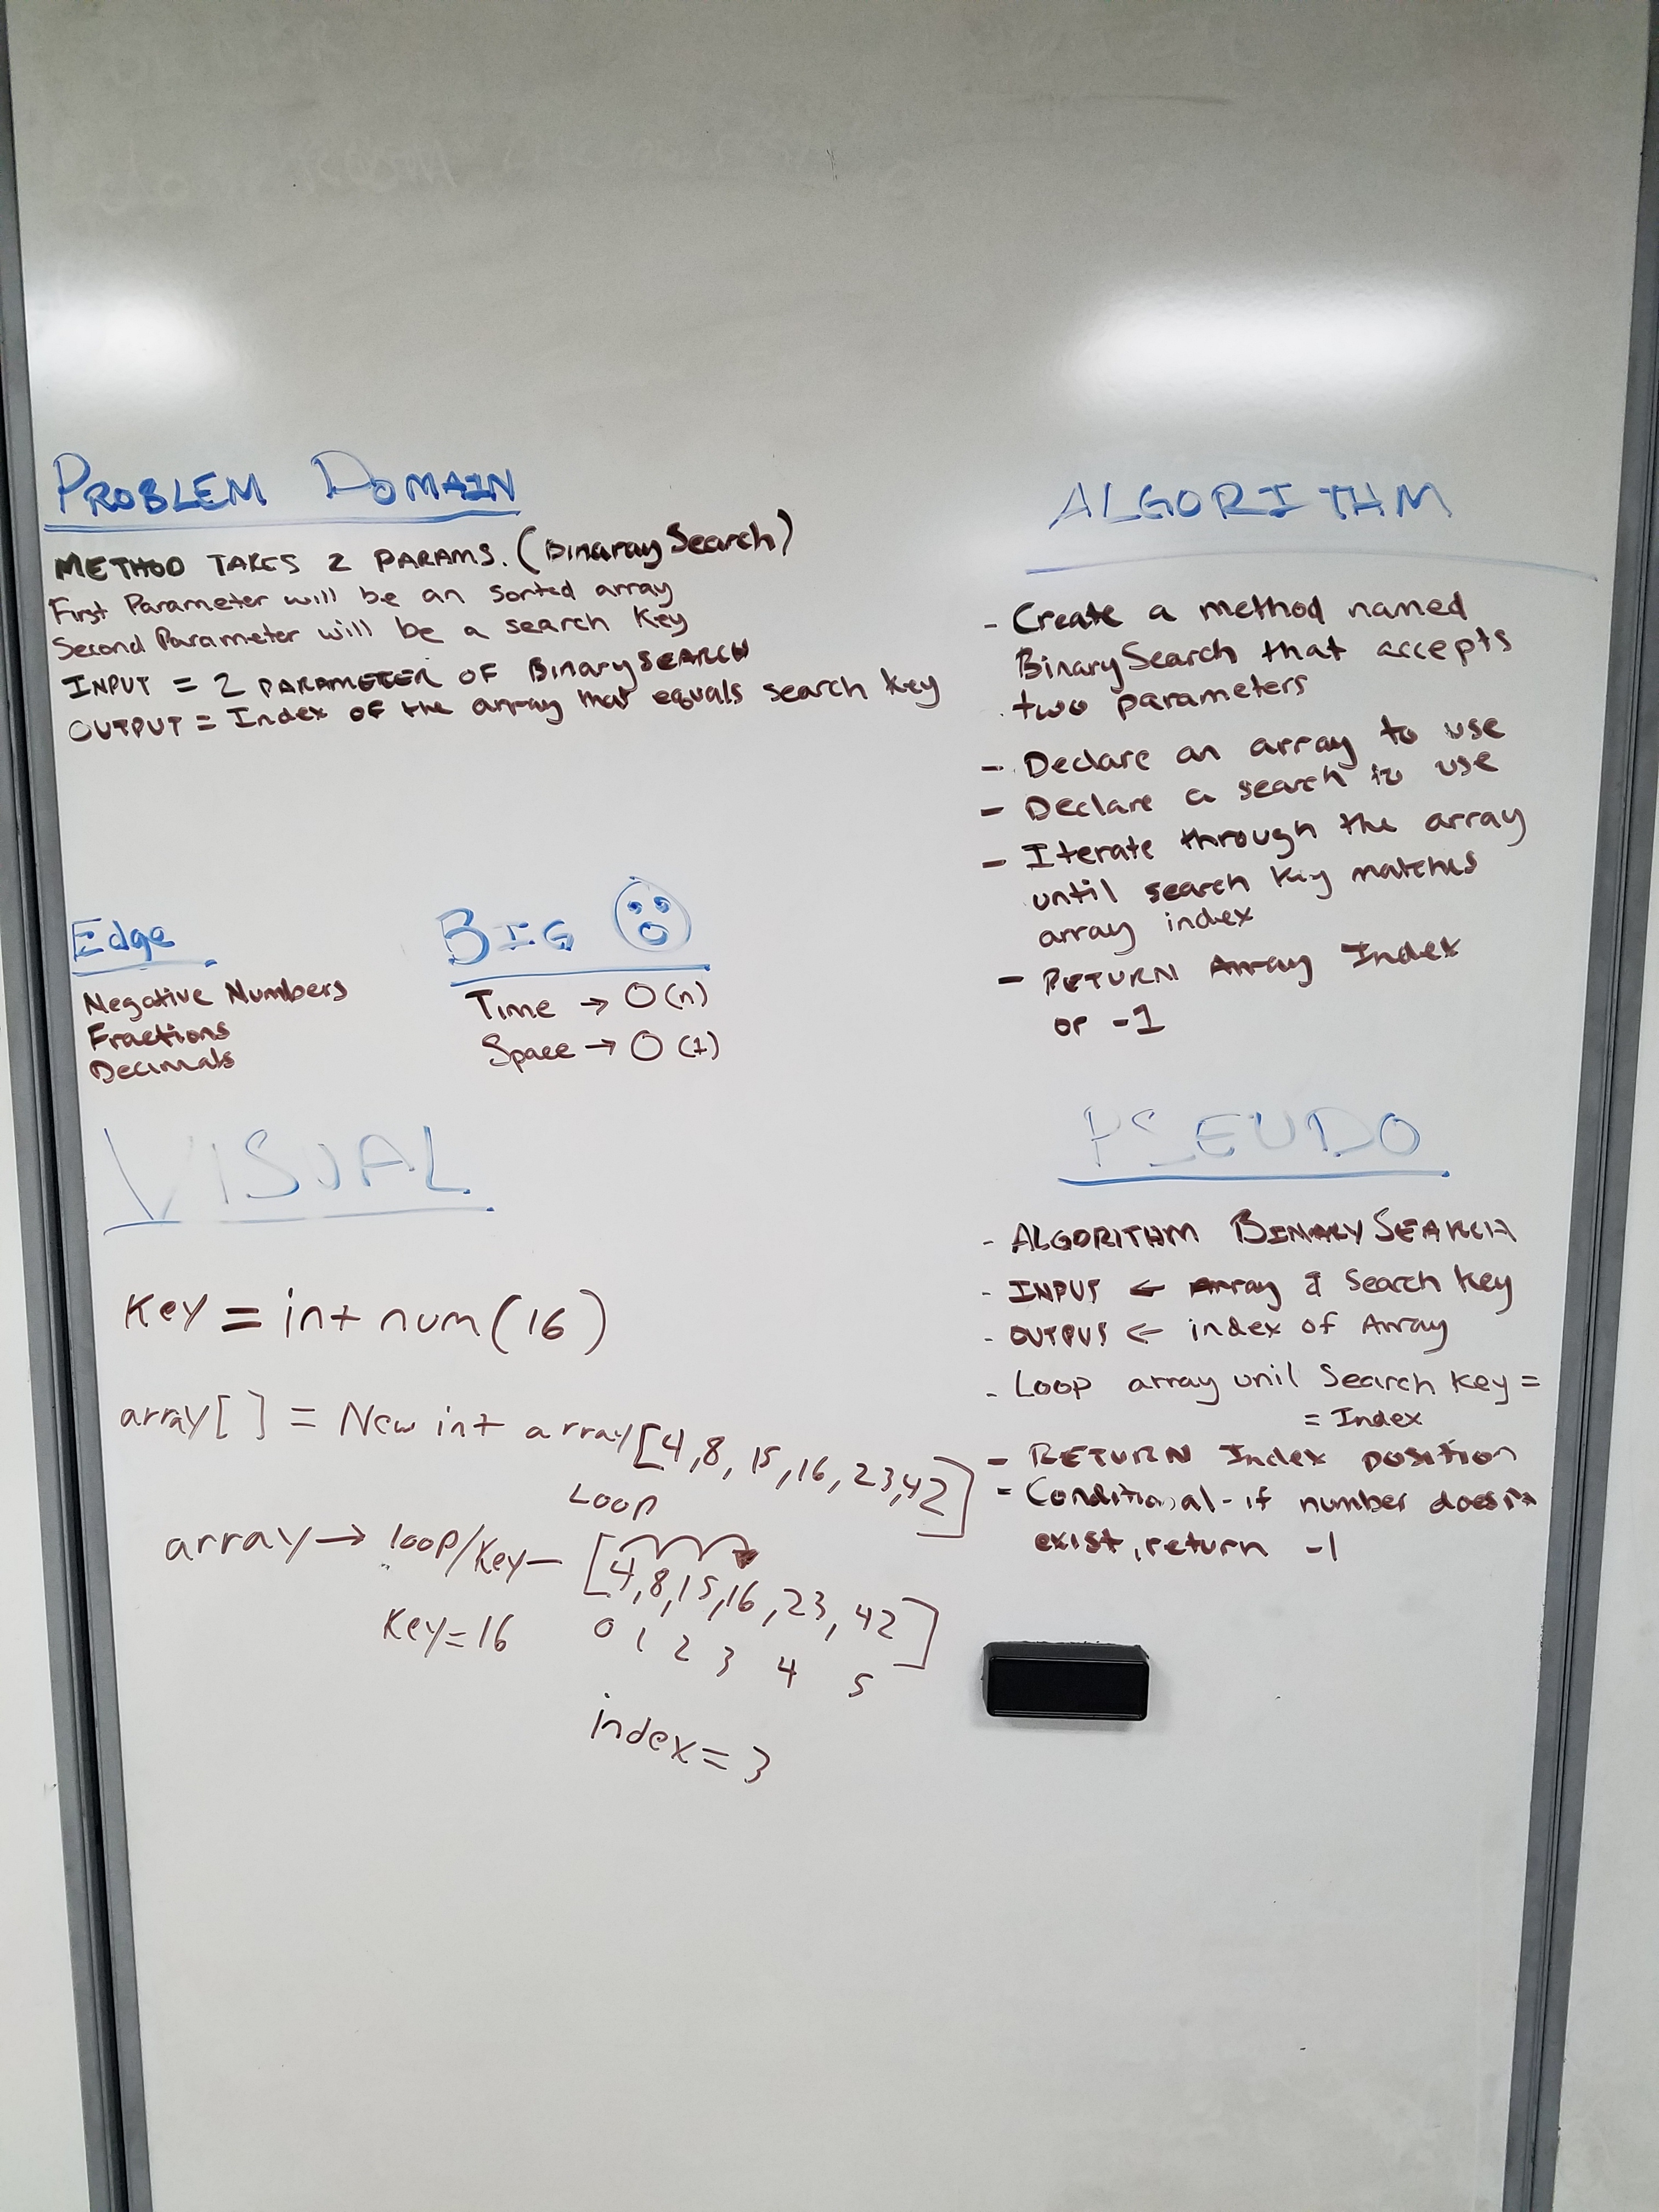 PROBLEM DOMAIN
METHOD TAKES 2 PARAMS. (BinaraySearch)
First Parameter will be an sorted array
Second Parameter will be a search Key
INPUT = 2 PARAMETER OF BinarySEARCH
OUTPUT = Index OF the array that equals search key
Edge
Negative Numbers
Fractions
Decimals
BIG
Time → O(n)
Space → O(1)
VISUAL
Key = int num(16)
array[ ] = New int array[4,8, 15, 16, 23,42]
Loop
array → loop/Key – [4,8,15,16,23,42]
Key=16 0 1 2 3 4 5
index = 3
ALGORITHM
- Create a method named
BinarySearch that accepts
two parameters
- Declare an array to use
- Declare a search to use
- Iterate through the array
until search key matches
array index
- RETURN Array Index
or -1
PSEUDO
- ALGORITHM BINARYSEARCH
- INPUT ← Array & Search Key
- OUTPUT ← index of Array
- Loop array unil Search Key =
= Index
- RETURN Index position
- Conditional - if number doesn't
exist, return -1